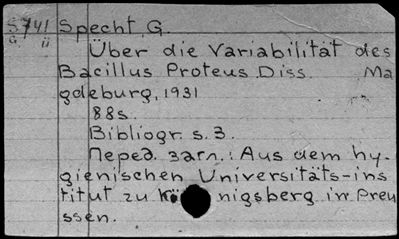 S741 Specht, G.
G ü
Über die Variabilität des
Bacillus Proteus Diss. Ma
gdeburg, 1931
88s.
Bibliogr. s. 3.
Перед. загл.: Aus dem hy-
gienischen Universitäts-ins
titut zu Kö nigsberg in Preu
ssen.